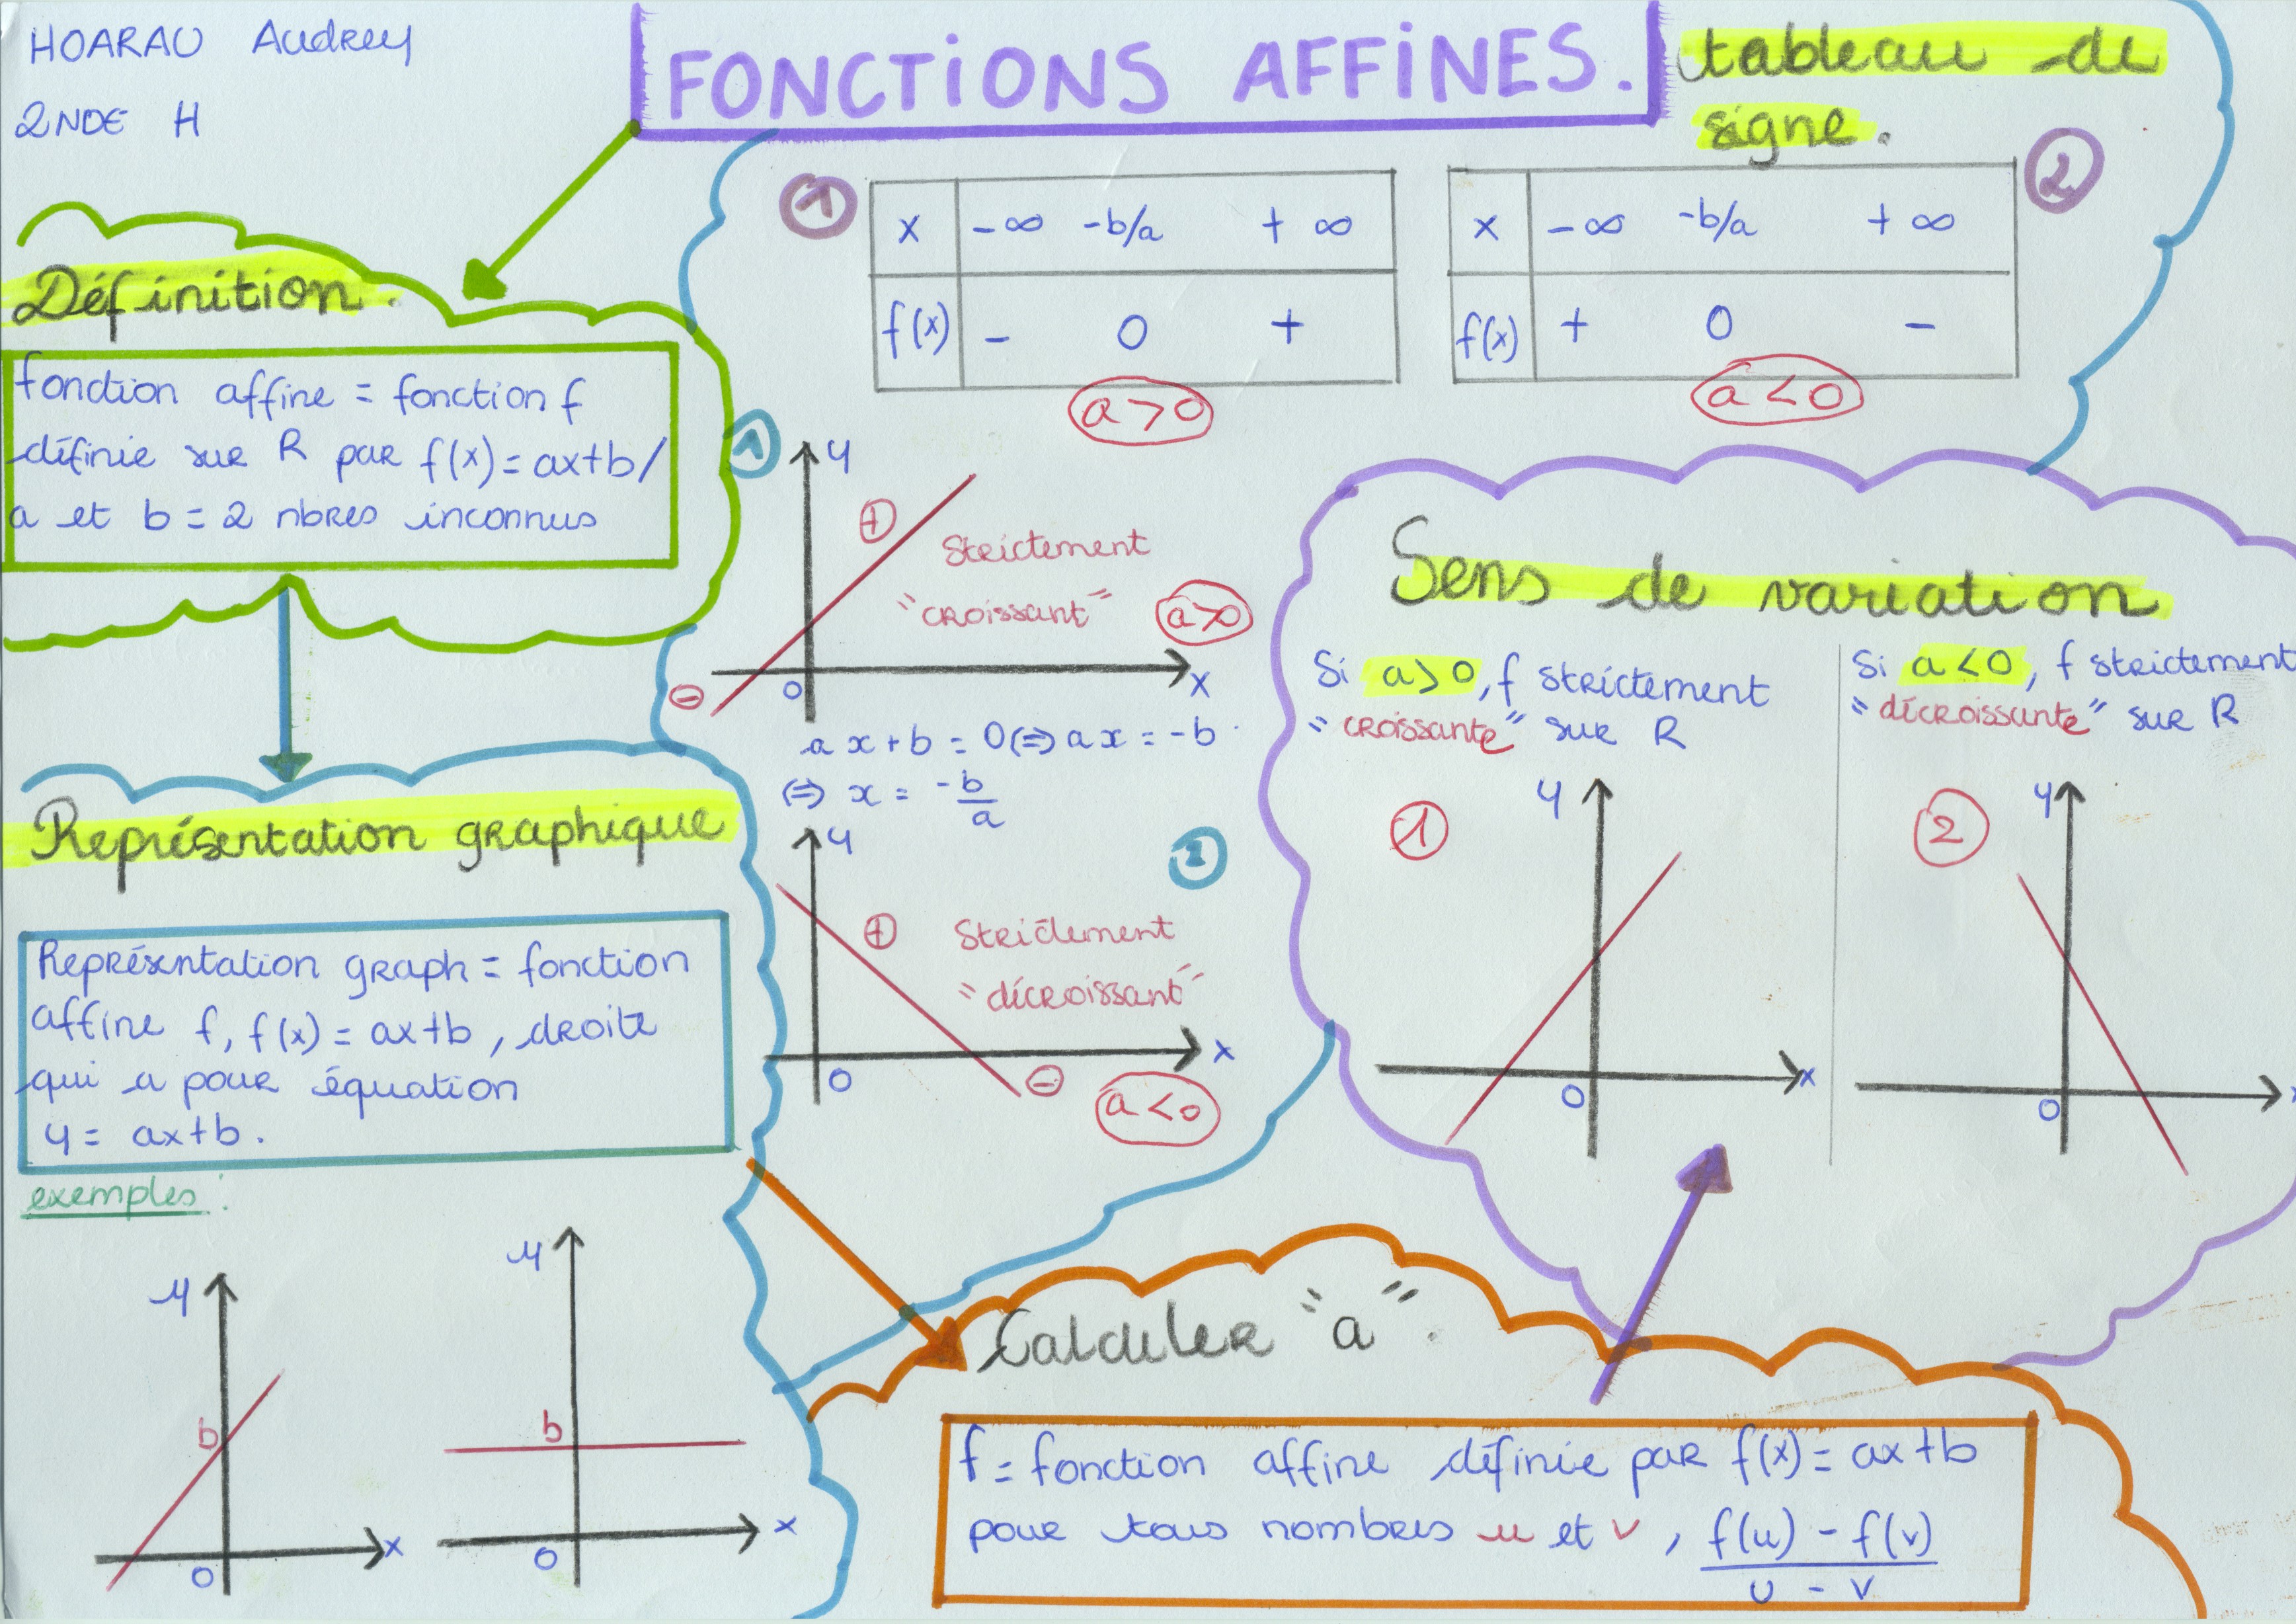 HOARAU Audrey
2NDE H
FONCTIONS AFFINES.
tableau de
signe.
1
x -∞ -b/a +∞
f(x) - 0 +
a>0
2
x -∞ -b/a +∞
f(x) + 0 -
a<0
Définition.
fonction affine = fonction f
définie sur R par f(x)=ax+b/
a et b = 2 nbres inconnus
1
y
+
Strictement
"croissant"
a>0
-
0
x
ax+b = 0 <=> ax = -b
<=> x = -b/a
y
2
+
Strictement
"décroissant"
x
0
-
a<0
Sens de variation
Si a>0, f strictement
"croissante" sur R
1
y
0
x
Si a<0, f strictement
"décroissante" sur R
2
y
0
Représentation graphique
Représentation graph = fonction
affine f, f(x) = ax+b, droite
qui a pour équation
y = ax+b.
exemples:
y
b
0
x
y
b
0
x
Calculer "a".
f = fonction affine définie par f(x) = ax+b
pour tous nombres u et v, f(u) - f(v)
u - v